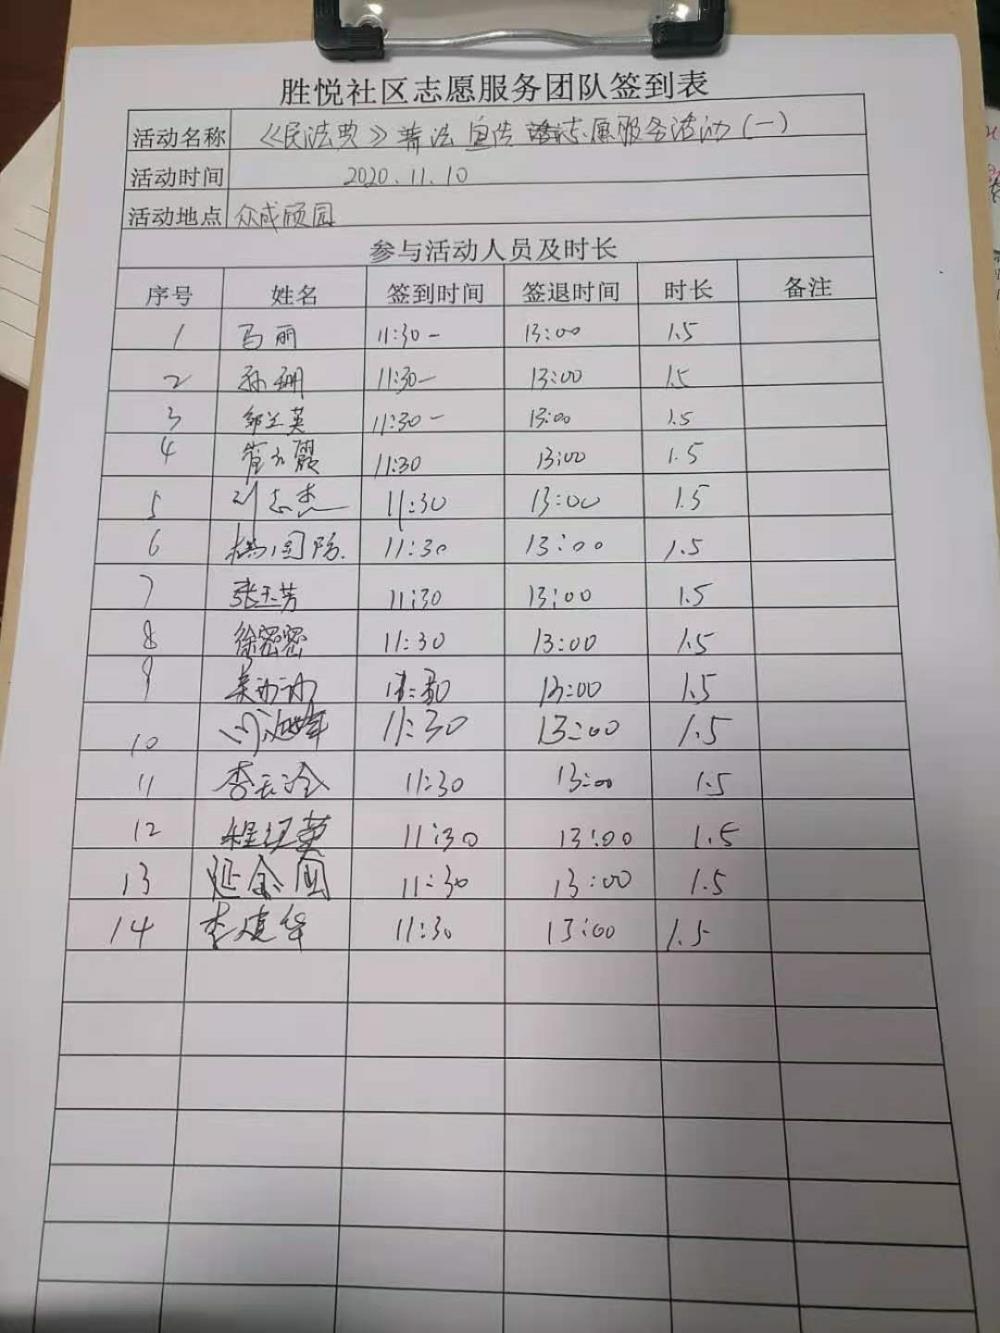 胜悦社区志愿服务团队签到表
活动名称 《民法典》普法宣传志愿服务活动(一)
活动时间 2020.11.10
活动地点 众成颐园
参与活动人员及时长
序号 姓名 签到时间 签退时间 时长 备注
1 马丽 11:30- 13:00 1.5
2 孙珊 11:30- 13:00 1.5
3 邹兰英 11:30- 13:00 1.5
4 霞 11:30 13:00 1.5
5 刘志杰 11:30 13:00 1.5
6 杨国防 11:30 13:00 1.5
7 张玉芳 11:30 13:00 1.5
8 徐密密 11:30 13:00 1.5
9 11:30 13:00 1.5
10 11:30 13:00 1.5
11 李 11:30 13:00 1.5
12 程红英 11:30 13:00 1.5
13 延金 11:30 13:00 1.5
14 李建华 11:30 13:00 1.5